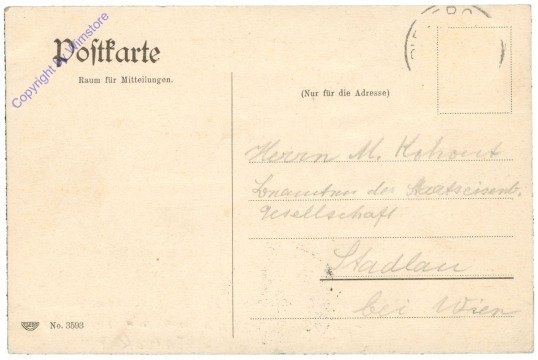 Postkarte
Raum für Mitteilungen.
(Nur für die Adresse)
Herrn M. Kohout
der Staatseisenb.
Gesellschaft
Stadlau
bei Wien
No. 3593
Copyright by Wimstore